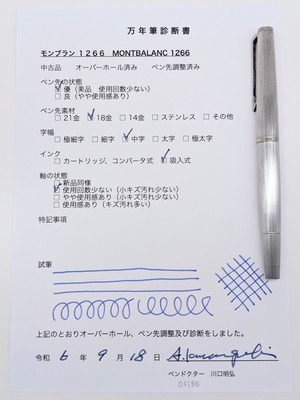 万年筆診断書
モンブラン１２６６　MONTBALANC 1266
中古品　オーバーホール済み　ペン先調整済み
ペン先の状態
☑優（美品　使用回数少ない）
□良（やや使用感あり）
ペン先素材
□21金　☑18金　□14金　□ステンレス　□その他
字幅
□極細字　□細字　☑中字　□太字　□極太字
インク
□カートリッジ、コンバータ式　☑吸入式
軸の状態
□新品同様
☑使用回数少ない（小キズ汚れ少ない）
□やや使用感あり（小キズ汚れ少ない）
□使用感あり（キズ汚れ多い）
特記事項
試筆
上記のとおりオーバーホール、ペン先調整及び診断をしました。
令和 6 年 9 月 18 日
ペンドクター　川口明弘